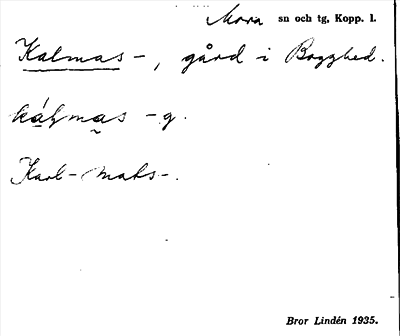 Mora sn och tg, Kopp. l.
Kalmas-, gård i Bogghed.
kálmas -g.
Karl-Mats-.
Bror Lindén 1935.